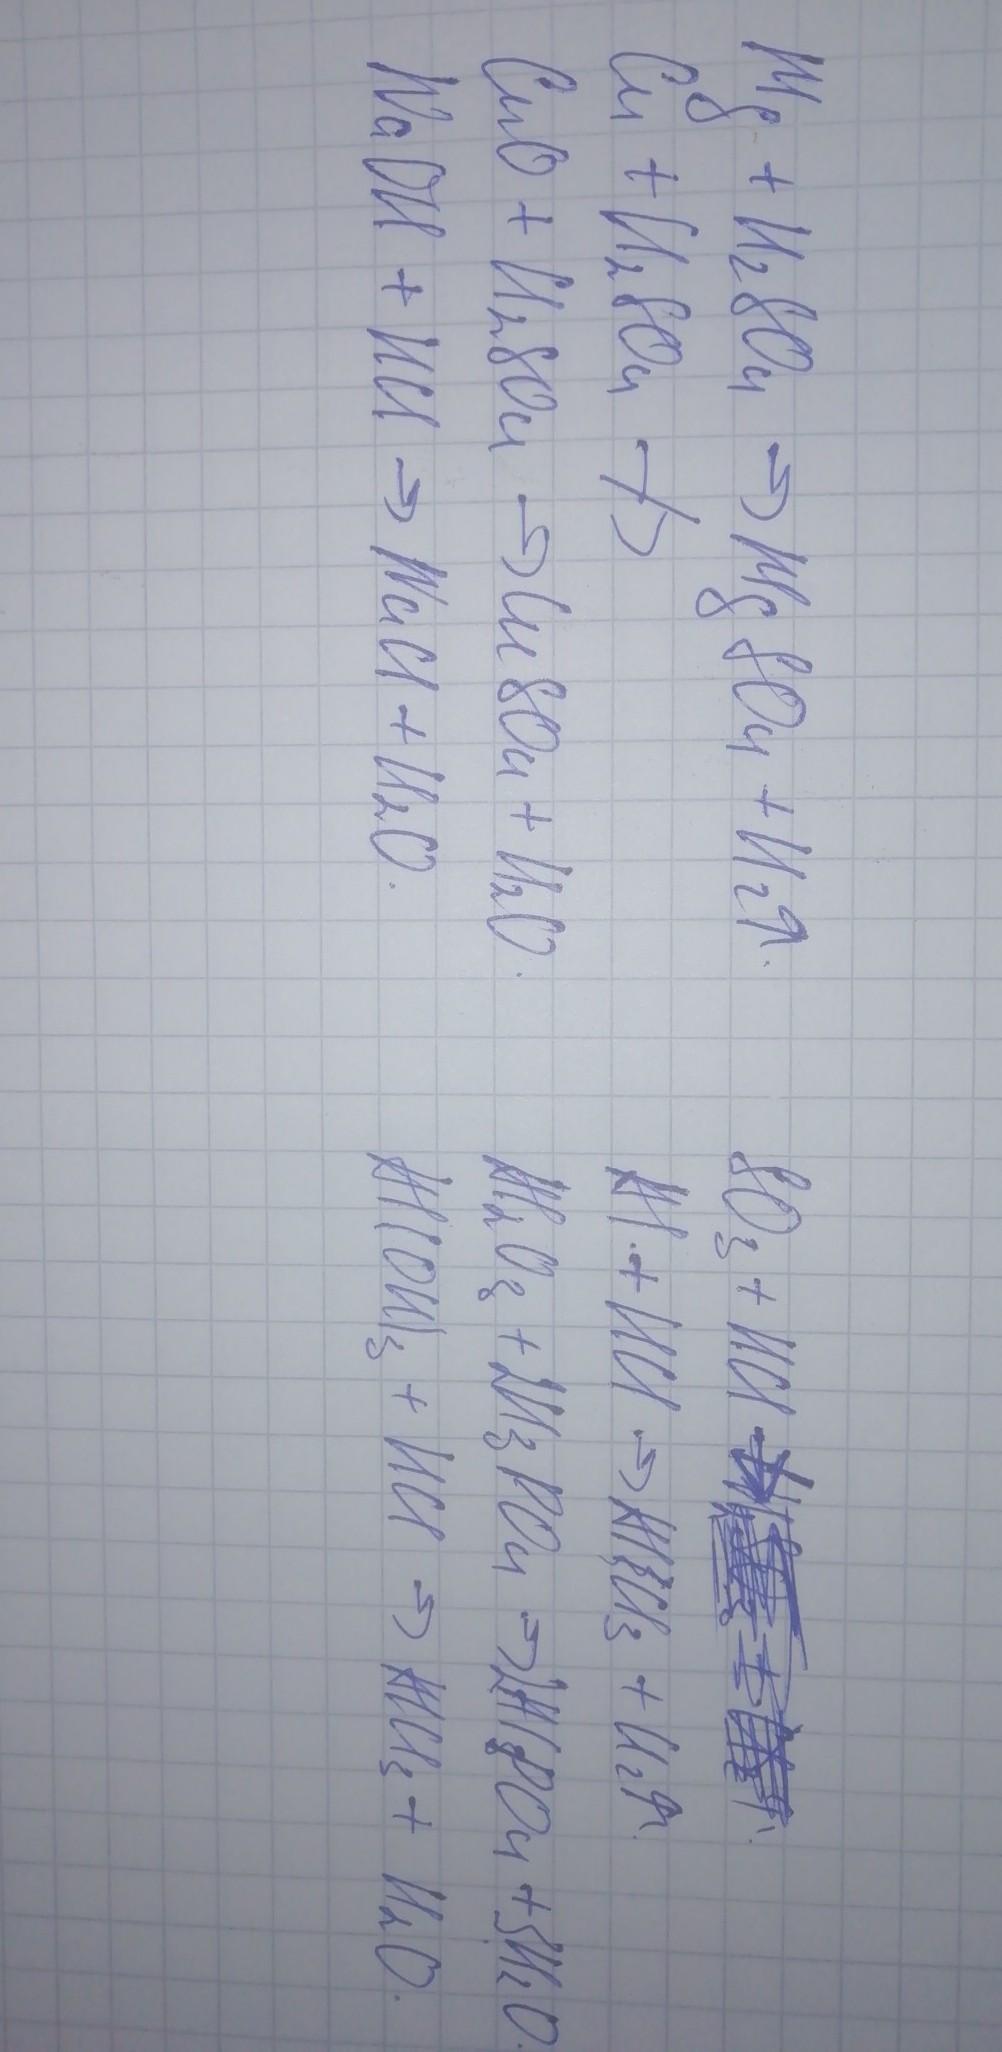 Mg + H₂SO₄ → MgSO₄ + H₂↑.
Cu + H₂SO₄ ↛
CuO + H₂SO₄ → CuSO₄ + H₂O.
NaOH + HCl → NaCl + H₂O.
SO₃ + HCl
Al + HCl → AlCl₃ + H₂↑.
Al₂O₃ + 2H₃PO₄ → 2AlPO₄ + 3H₂O.
Al(OH)₃ + HCl → AlCl₃ + H₂O.